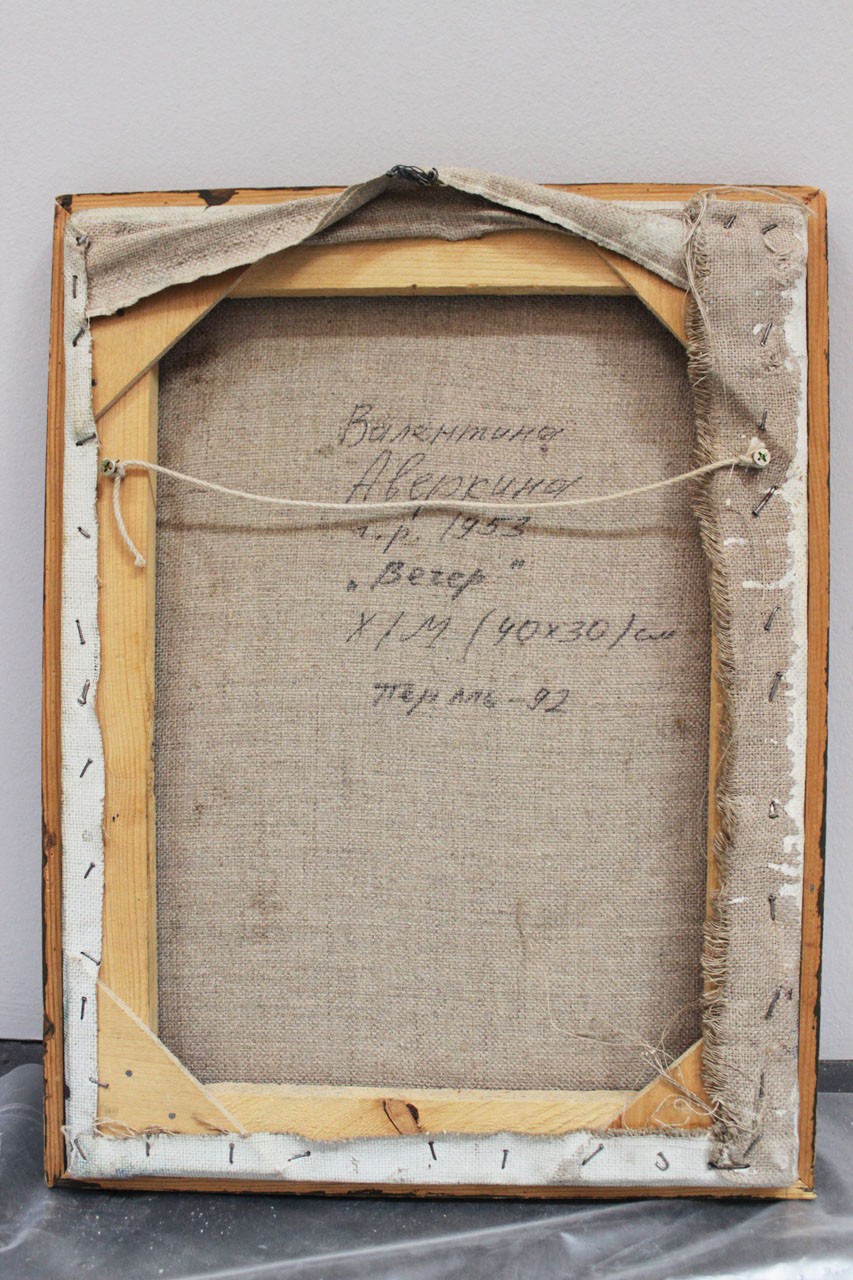 Валентина
Аверкина
г.р. 1953
„Вечер"
Х/М (40х30) см
-92